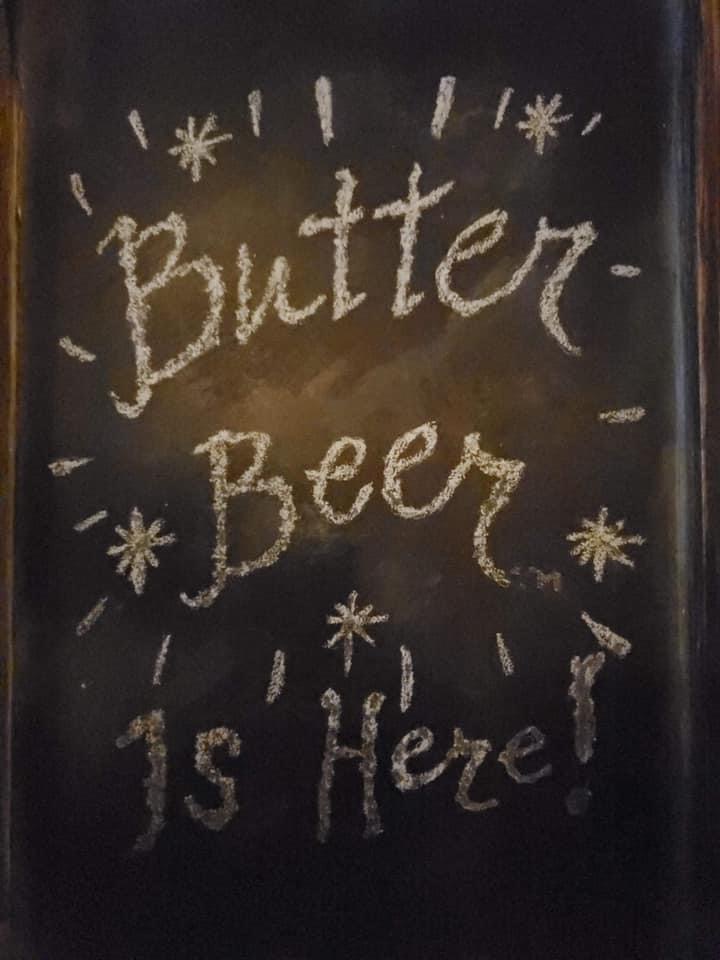 Butter
Beer
Is Here!